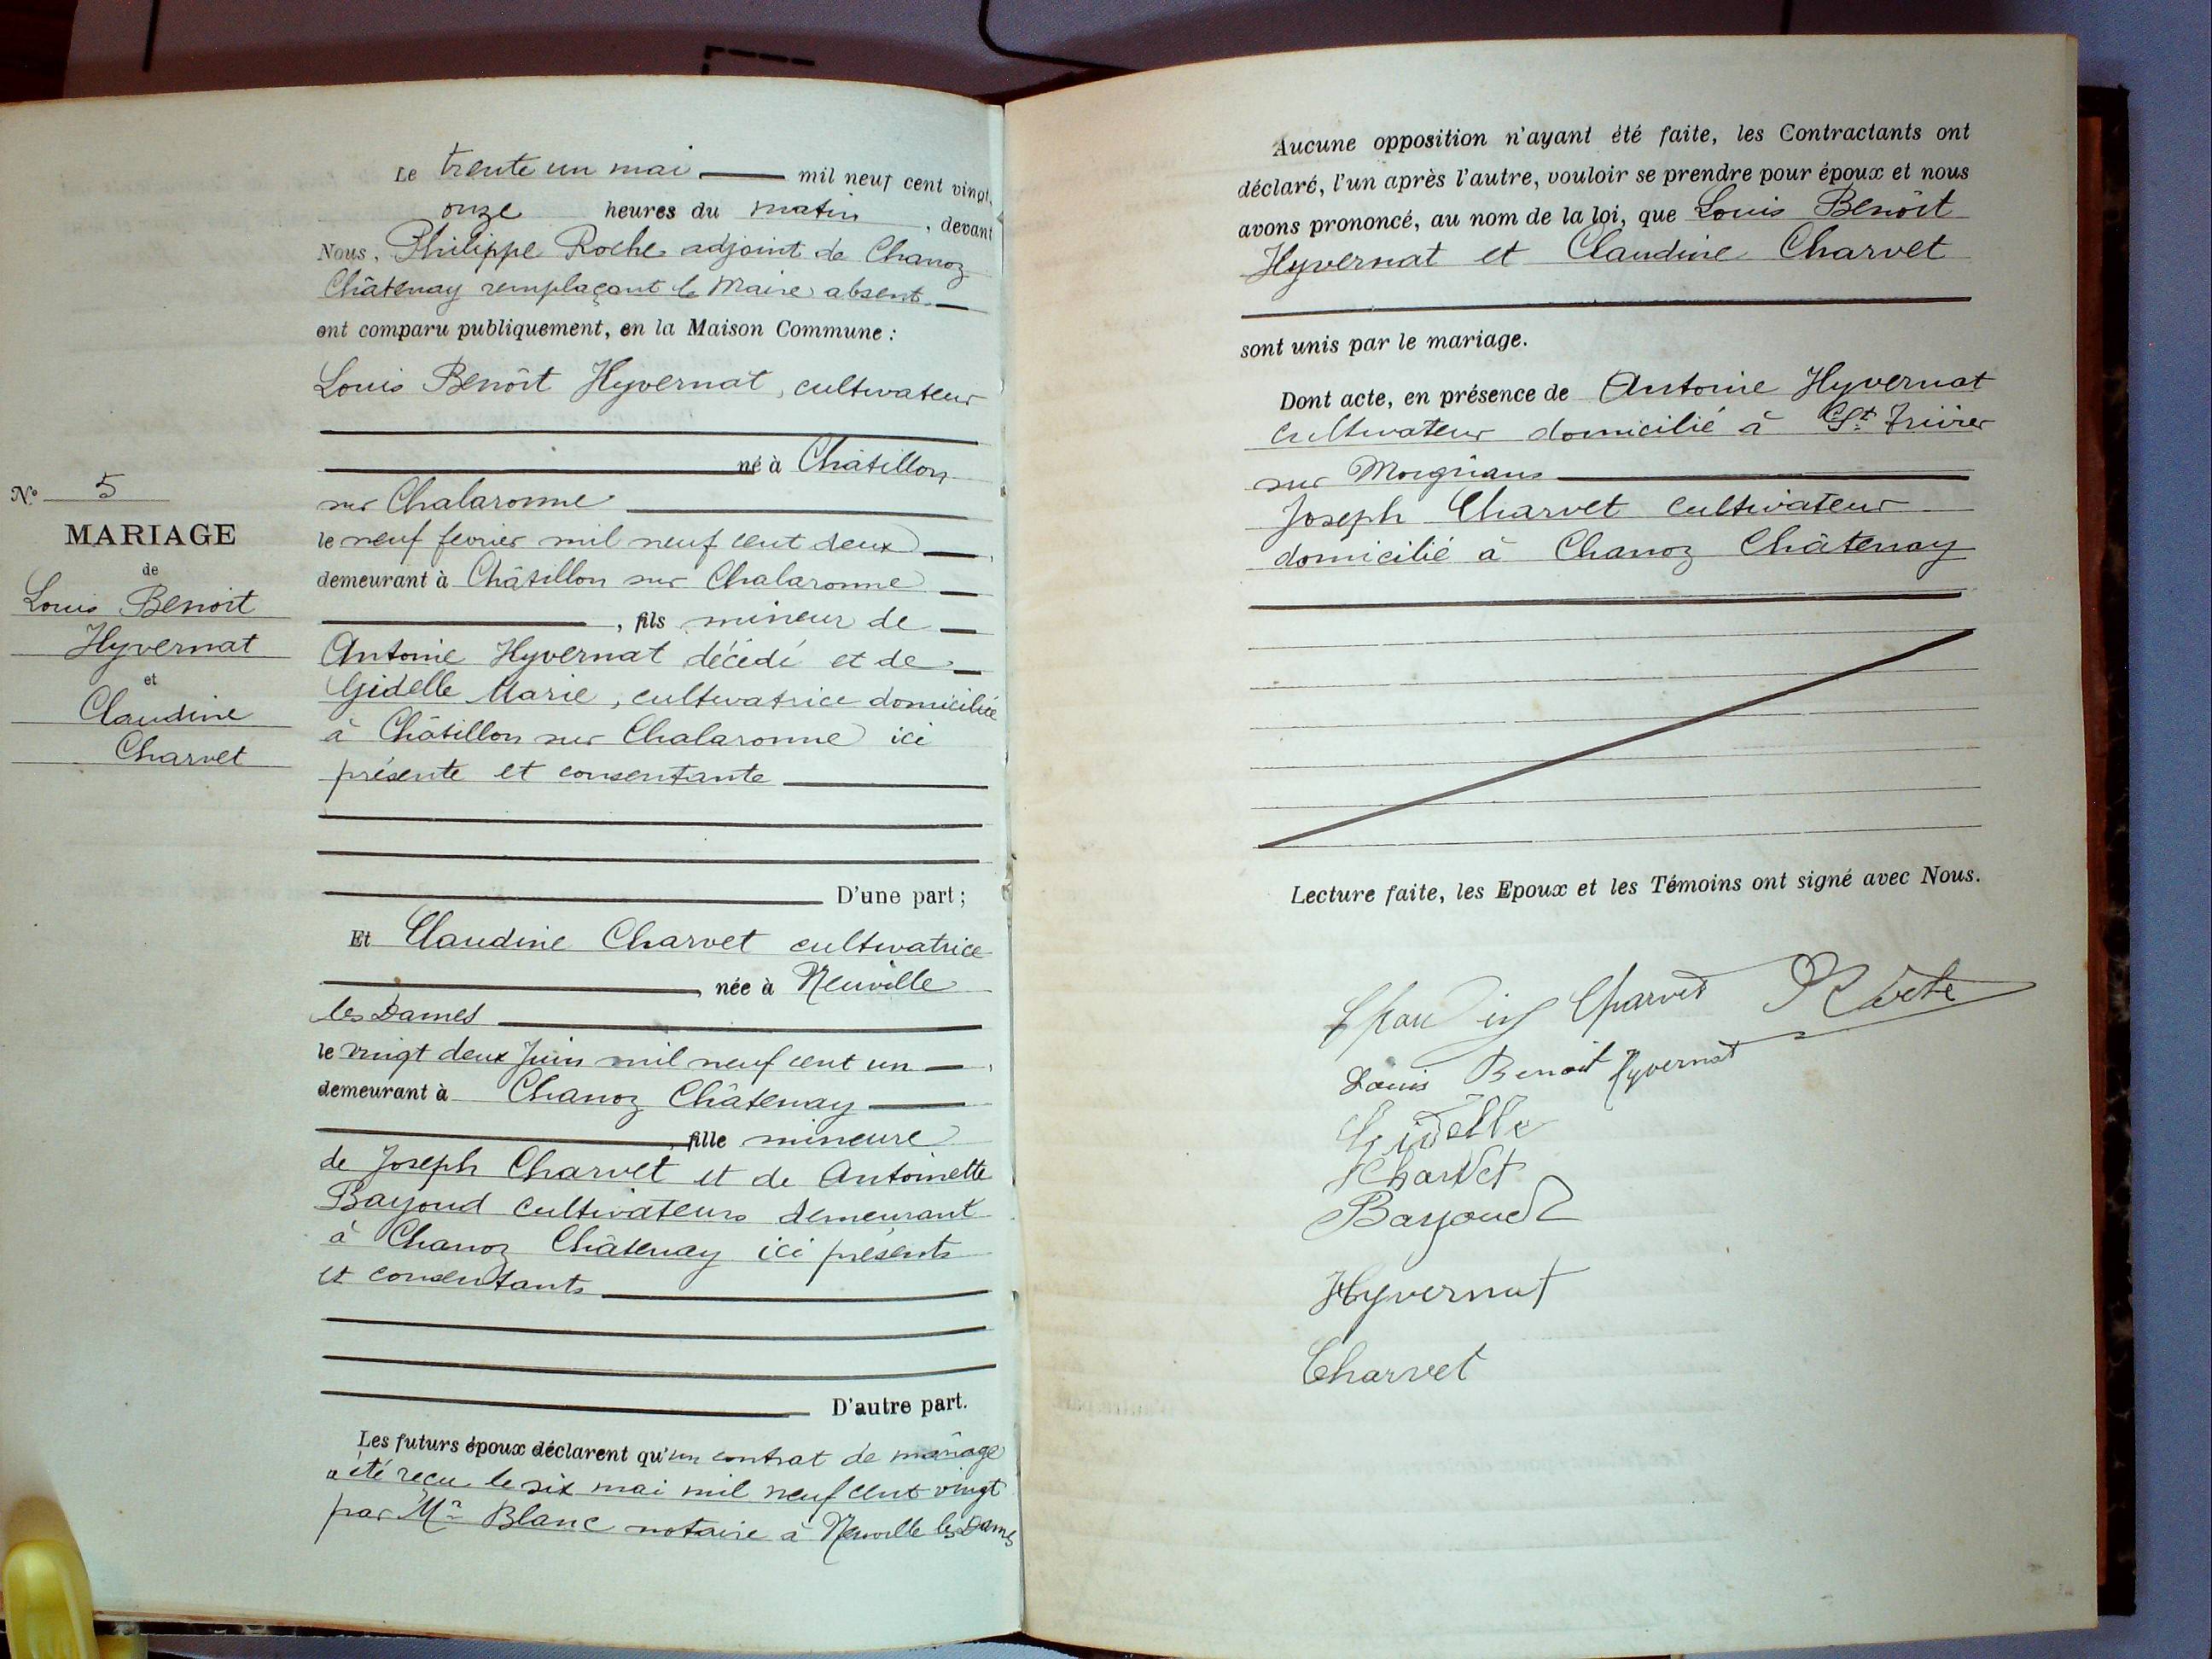 Le trente un mai mil neuf cent vingt,
onze heures du matin, devant
Nous, Philippe Roche adjoint de Chanoz
Châtenay remplaçant le Maire absent
ont comparu publiquement, en la Maison Commune :
Louis Benoît Hyvernat, cultivateur
né à Châtillon
sur Chalaronne
le neuf février mil neuf cent deux,
demeurant à Châtillon sur Chalaronne
, fils mineur de
Antoine Hyvernat décédé et de
Gidelle Marie, cultivatrice domiciliée
à Châtillon sur Chalaronne ici
présente et consentante
D'une part ;
Et Claudine Charvet cultivatrice
, née à Neuville
les Dames
le vingt deux Juin mil neuf cent un,
demeurant à Chanoz Châtenay
, fille mineure
de Joseph Charvet et de Antoinette
Bayoud cultivateurs demeurant
à Chanoz Châtenay ici présents
et consentants
D'autre part.
Les futurs époux déclarent qu'un contrat de mariage
a été reçu le six mai mil neuf cent vingt
par Mre Blanc notaire à Neuville les Dames
N° 5
MARIAGE
de
Louis Benoit
Hyvernat
et
Claudine
Charvet
Aucune opposition n'ayant été faite, les Contractants ont
déclaré, l'un après l'autre, vouloir se prendre pour époux et nous
avons prononcé, au nom de la loi, que Louis Benoît
Hyvernat et Claudine Charvet
sont unis par le mariage.
Dont acte, en présence de Antoine Hyvernat
cultivateur domicilié à St Trivier
sur Moignans
Joseph Charvet cultivateur
domicilié à Chanoz Châtenay
Lecture faite, les Epoux et les Témoins ont signé avec Nous.
Claudine Charvet Roche
Louis Benoit Hyvernat
Gidelle
Charvet
Bayoud
Hyvernat
Charvet